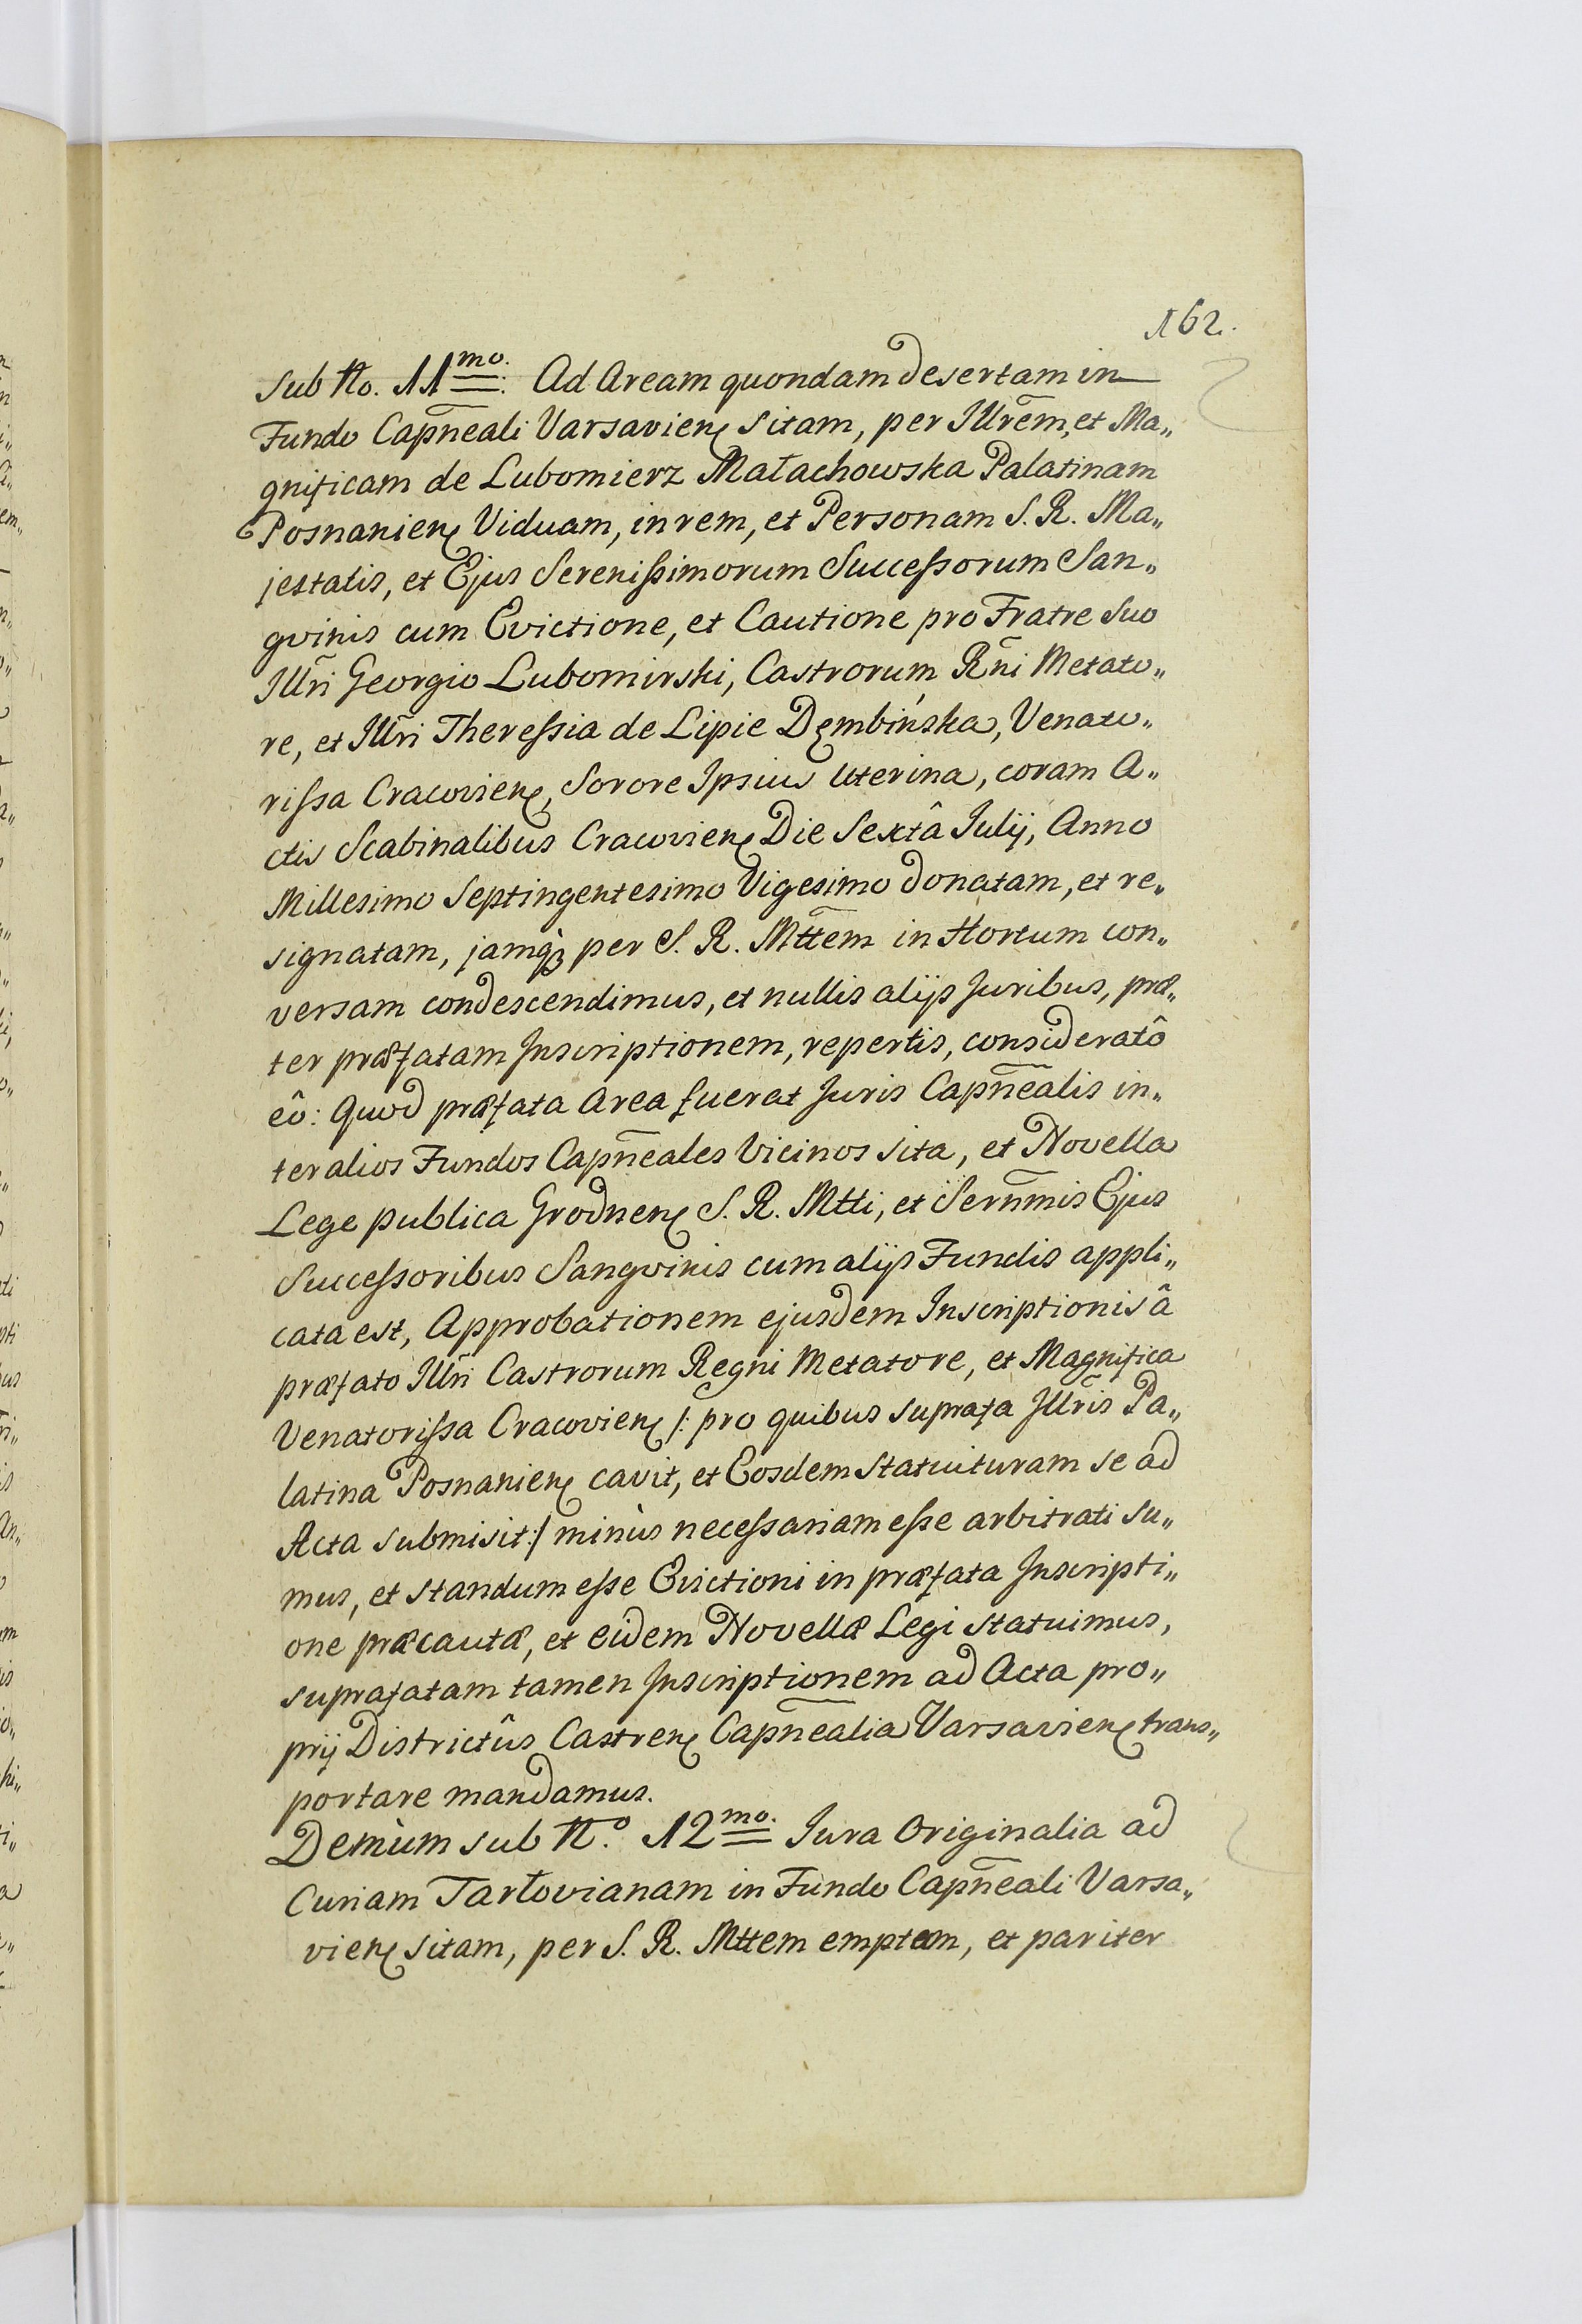 162.
Sub No. 11mo. Ad Aream quondam desertam in
Fundo Capn̄eali Varsavien̨ Sitam, per Illrēm, et Ma„
gnificam de Lubomierz Małachowska Palatinam
Posnanien̨ Viduam, in rem, et Personam S. R. Ma„
jestatis, et Ejus Serenißimorum Succeßorum San„
gvinis cum Evictione, et Cautione pro Fratre Suo
Illr̄i Georgio Lubomirski, Castrorum Rn̄i Metato„
re, et Illr̄i Thereßia de Lipie Dęmbińska, Venato„
rißa Cracovien̨, Sorore Ipsius Uterina, coram A„
ctis Scabinalibus Cracovien̨ Die Sextâ Julij, Anno
Millesimo Septingentesimo Vigesimo donatam, et re„
signatam, jamq̀ꝫ per S. R. Mttēm in Hortum con„
versam condescendimus, et nullis alijs Juribus, præ„
ter præfatam Inscriptionem, repertis, consideratô
eô: Quod præfata Area fuerat Juris Capn̄ealis in„
ter alios Fundos Capn̄eales Vicinos sita, et Novella
Lege publica Grodnen̨ S. R. Mtti, et Sernm̄is Ejus
Succeßoribus Sangvinis cum alijs Fundis appli„
cata est, Approbationem ejusdem Inscriptionis â
præfato Illr̄i Castrorum Regni Metatore, et Magnifica
Venatorißa Cracovien̨ /: pro quibus suprafa Illr̄is Pa„
latina Posnanien̨ cavit, et Eosdem Statuituram se ad
Acta submisit :/ minùs neceßariam eße arbitrati su„
mus, et standum eße Evictioni in præfata Inscripti„
one præcautæ, et eidem Novellæ Legi statuimus,
suprafatam tamen Inscriptionem ad Acta pro„
prij Districtûs Castren̨ Capn̄ealia Varsavien̨ trans„
portare mandamus.
Demùm sub No. 12mo. Jura Originalia ad
Curiam Tarłovianam in Fundo Capn̄eali Varsa„
vien̨ sitam, per S. R. Mttem emptam, et pariter